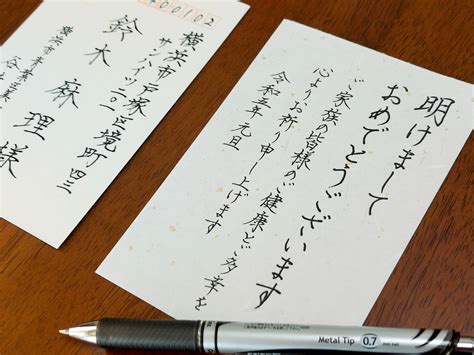 明けまして
おめでとうございます
ご家族の皆様のご健康とご多幸を
心よりお祈り申し上げます
令和五年 元旦
00102
横浜市戸塚区境町 四二
サンハイツ二〇一
鈴木 麻理様
横浜市青葉
Metal Tip 0.7